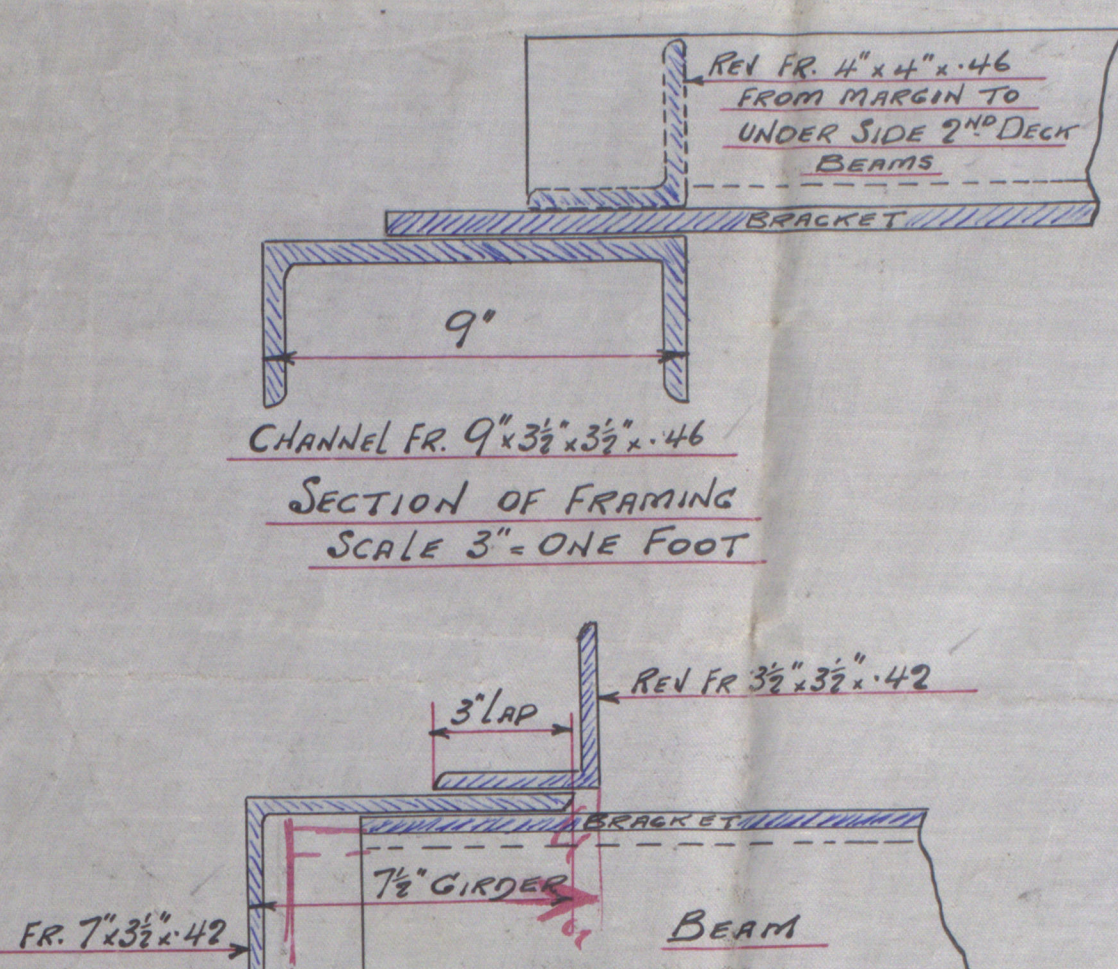 REV FR. 4" x 4" x ·46
FROM MARGIN TO
UNDER SIDE 2ND DECK
BEAMS
BRACKET
9"
CHANNEL FR. 9" x 3½" x 3½" x ·46
SECTION OF FRAMING
SCALE 3" = ONE FOOT
REV FR 3½" x 3½" x ·42
3" LAP
BRACKET
7½" GIRDER
FR. 7" x 3½" x ·42
BEAM